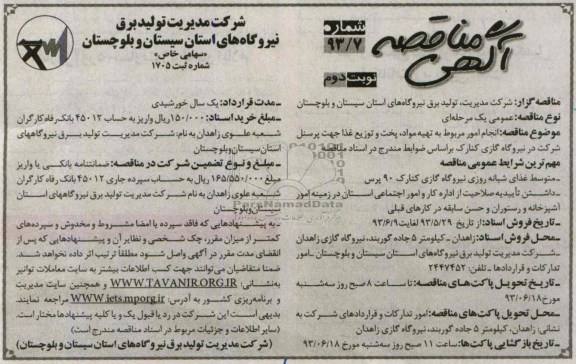 آگهی مناقصه
شماره
۹۳/۷
نوبت دوم
شرکت مدیریت تولید برق
نیروگاه‌های استان سیستان و بلوچستان
«سهامی خاص»
شماره ثبت ۱۷۰۵
مناقصه گزار: شرکت مدیریت، تولید برق نیروگاه‌های استان سیستان و بلوچستان
نوع مناقصه: عمومی یک مرحله‌ای
موضوع مناقصه: انجام امور مربوط به تهیه مواد، پخت و توزیع غذا جهت پرسنل
شرکت در نیروگاه گازی کنارک براساس ضوابط مندرج در اسناد مناقصه
مهم‌ترین شرایط عمومی مناقصه
ـ متوسط غذای شبانه روزی نیروگاه گازی کنارک ۹۰ پرس
ـ داشتن تأییدیه صلاحیت از اداره کار و امور اجتماعی استان در زمینه امور
آشپزخانه و رستوران و حسن سابقه در کارهای قبلی
ـ تاریخ فروش اسناد: از تاریخ ۹۳/۵/۲۹ لغایت ۹۳/۶/۹
ـ محل فروش اسناد: زاهدان ـ کیلومتر ۵ جاده گوربند، نیروگاه گازی زاهدان
ـ شرکت مدیریت تولید برق نیروگاه‌های استان سیستان و بلوچستان ـ امور
تدارکات و قراردادها ـ تلفن: ۲۴۴۷۴۵۲
ـ تاریخ تحویل پاکت‌های مناقصه: تا ساعت ۸ صبح روز سه‌شنبه
مورخ ۹۳/۰۶/۱۸
ـ محل تحویل پاکت‌های مناقصه: امور تدارکات و قراردادهای شرکت به
نشانی: زاهدان، کیلومتر ۵ جاده گوربند، نیروگاه گازی زاهدان
ـ تاریخ بازگشایی پاکت‌ها: ساعت ۱۱ صبح روز سه‌شنبه مورخ ۹۳/۰۶/۱۸
ـ مدت قرارداد: یک سال خورشیدی
ـ مبلغ خرید اسناد: ۱۵۰/۰۰۰ ریال واریز به حساب ۴۵۰۱۲ بانک رفاه کارگران
شعبه علوی زاهدان به نام: شرکت مدیریت تولید برق نیروگاههای
استان سیستان و بلوچستان
ـ مبلغ و نوع تضمین شرکت در مناقصه: ضمانتنامه بانکی یا واریز
مبلغ ۱۶۵/۵۵۰/۰۰۰ ریال به حساب سپرده جاری ۴۵۰۱۲ بانک رفاه کارگران
شعبه علوی زاهدان به نام شرکت مدیریت تولید برق نیروگاههای استان
سیستان و بلوچستان
ـ به پیشنهادهایی که فاقد سپرده یا امضا مشروط و مخدوش و سپرده‌های
کمتر از میزان مقرر، چک شخصی و نظایر آن و پیشنهادهایی که پس از
انقضای مدت مقرر در آگهی واصل شود مطلقاً ترتیب اثر داده نخواهد شد.
ضمنا متقاضیان می‌توانند جهت کسب اطلاعات بیشتر به سایت معاملات توانیر
به‌نشانی: WWW.TAVANIR.ORG.IR و همچنین سایت مدیریت
و برنامه‌ریزی کشور به آدرس: WWW.iets.mporg.ir مراجعه نمایند.
بدیهی است این شرکت در رد یا قبول یک و یا کلیه پیشنهادها مختار است.
(سایر اطلاعات و جزئیات مربوط در اسناد مناقصه مندرج است)
(شرکت مدیریت تولید برق نیروگاه‌های استان سیستان و بلوچستان)
ParsNamadData